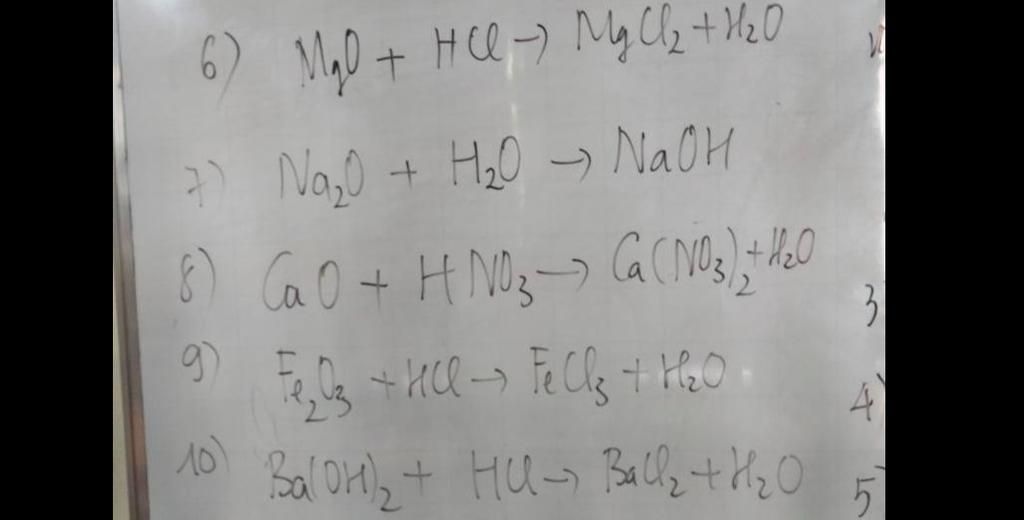 6) MgO + HCl → MgCl₂ + H₂O
7) Na₂O + H₂O → NaOH
8) CaO + HNO₃ → Ca(NO₃)₂ + H₂O
3
9) Fe₂O₃ + HCl → FeCl₃ + H₂O
4)
10) Ba(OH)₂ + HCl → BaCl₂ + H₂O
5